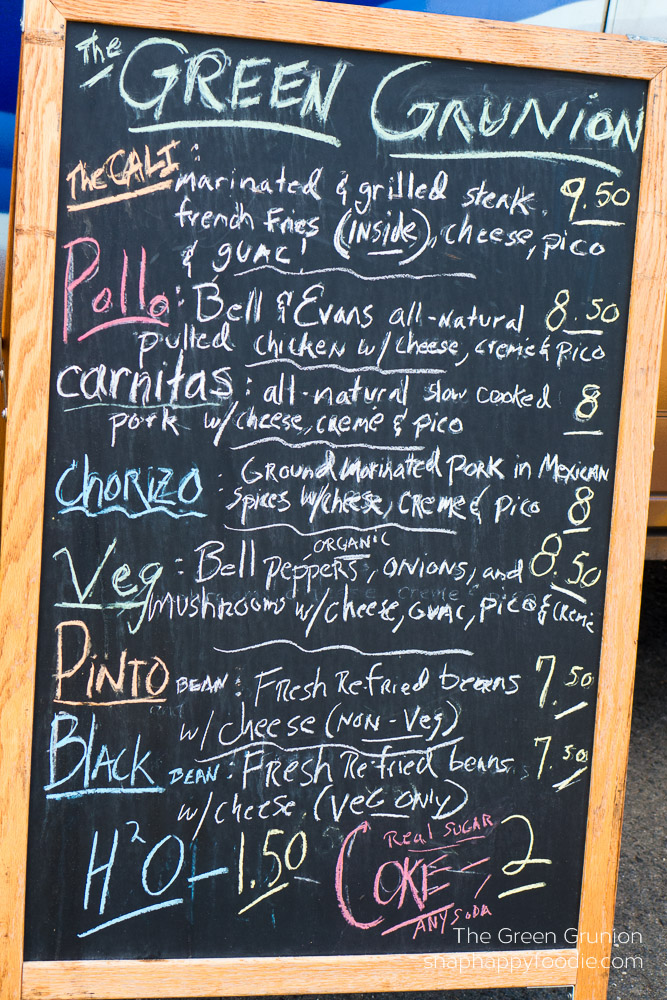 The GREEN GRUNION
The CALI : marinated & grilled steak 9.50
french fries (inside), cheese, pico
& guac!
Pollo : Bell & Evans all-natural 8.50
pulled chicken w/ cheese, creme & pico
carnitas : all-natural slow cooked 8
pork w/cheese, creme & pico
Chorizo : Ground marinated pork in Mexican
spices w/cheese, creme & pico 8
ORGANIC
Veg : Bell peppers, onions, and 8.50
mushrooms w/ cheese, guac, pico & creme
PINTO BEAN : Fresh Refried beans 7.50
w/ cheese (NON-Veg)
BLACK BEAN : Fresh Refried beans 7.50
w/cheese (VEG ONLY)
H²O - 1.50
Real SUGAR
COKE 2
ANY SODA
The Green Grunion
snaphappyfoodie.com